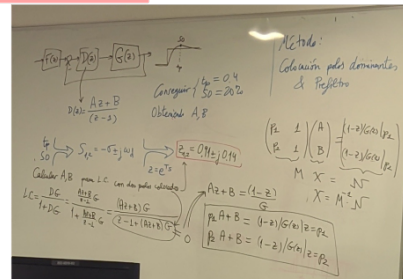 F(z) D(z) G(z)
SO
tp
D(z) = Az+B / (z-1)
Conseguir { tp = 0,4
SO = 20%
Obteniendo A, B
Método:
Colocación polos dominantes
& Prefiltro
tp
SO
S1,2 = -σ ± jωd
z = e^Ts
z1,2 = 0,91 ± j 0,14
Calcular A, B para LC con dos polos colocados
LC = DG / 1+DG = (Az+B / z-1) G / 1 + (Az+B / z-1) G = (Az+B) G / z-1+(Az+B) G
0
Az+B = (1-z) / G
p2 A + B = (1-z)/G(z)|z=p2
(p2 1) (A) = ((1-z)/G(z)|z=p2)
M X = N
X = M⁻¹ N